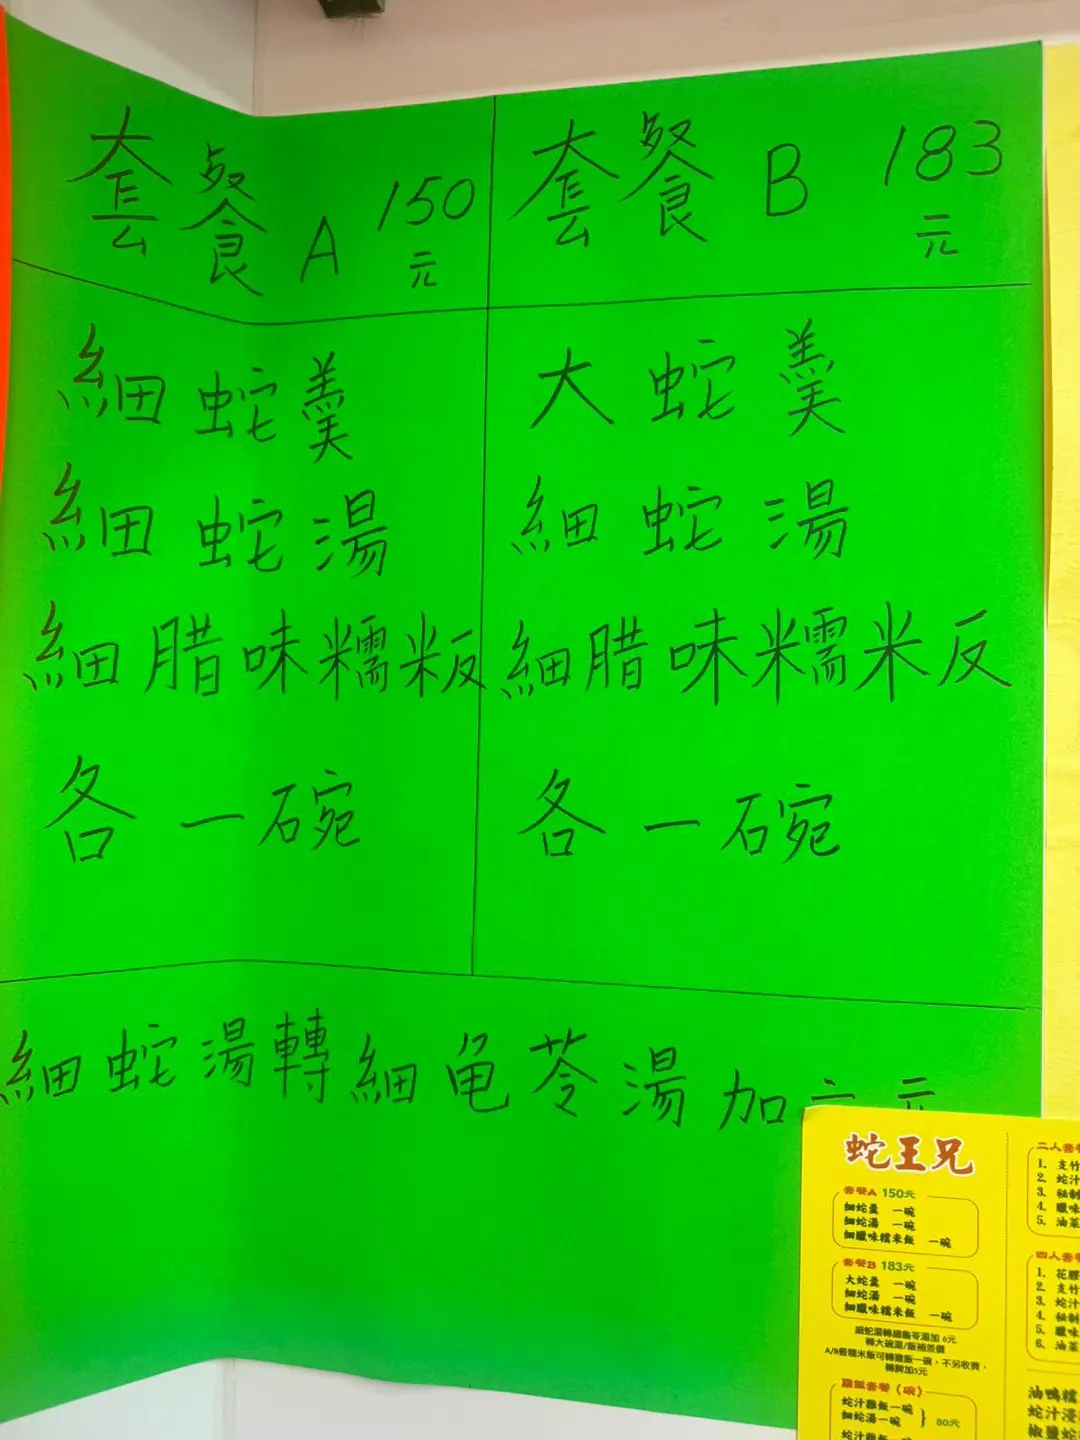 套餐A 150元
細蛇羹
細蛇湯
細腊味糯籹
各一碗
套餐B 183元
大蛇羹
細蛇湯
細腊味糯米反
各一碗
細蛇湯轉細龟苓湯加六元
蛇王兄
套餐A 150元
細蛇羹 一碗
細蛇湯 一碗
細臘味糯米飯 一碗
套餐B 183元
大蛇羹 一碗
細蛇湯 一碗
細臘味糯米飯 一碗
細蛇湯轉細龜苓湯加 6元
轉大碗湯/飯補差價
A/B餐糯米飯可轉雞飯一碗,不另收費,
轉髀加5元
雞飯套餐(碗)
蛇汁雞飯一碗
細蛇湯一碗
80元
蛇汁雞飯一碗
二人套餐
1. 支竹
2. 蛇汁
3. 秘制
4. 臘味
5. 油菜
四人套餐
1. 花膠
2. 支竹
3. 蛇汁
4. 秘制
5. 臘味
6. 油菜
油鴨糯
蛇汁浸
椒鹽蛇